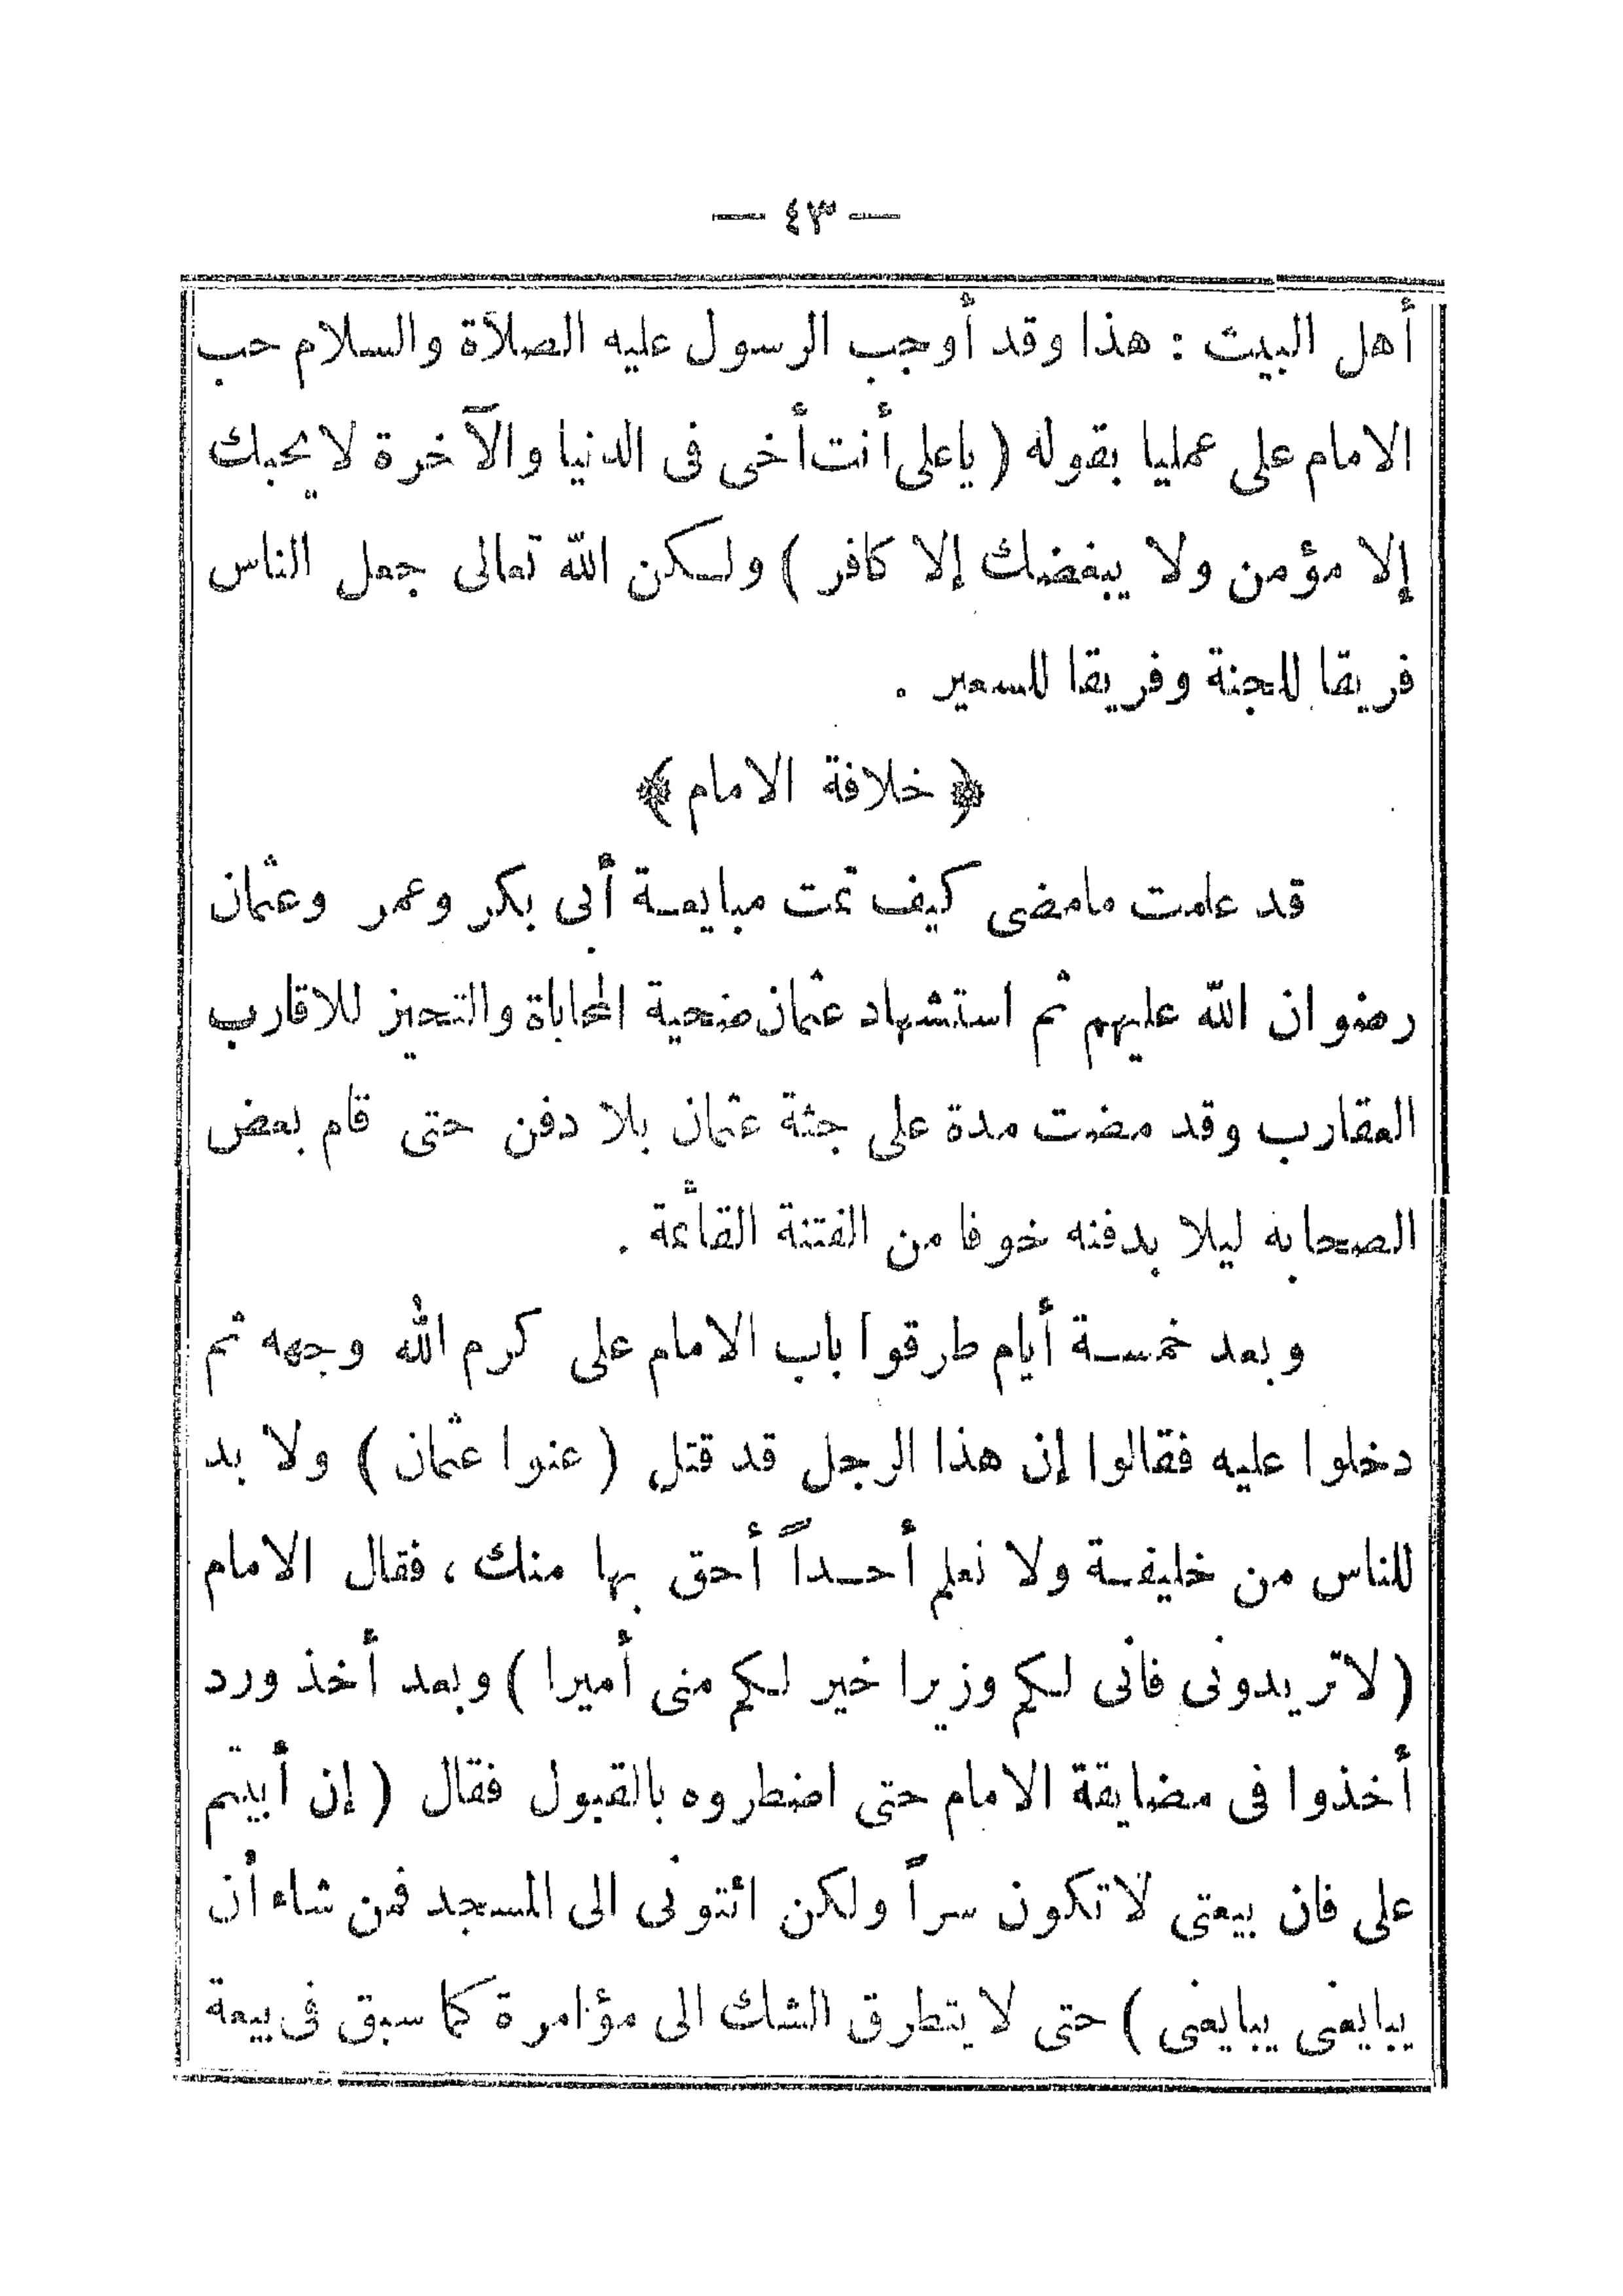 — ٤٣ —
أهل البيت : هذا وقد أوجب الرسول عليه الصلاة والسلام حب
الامام على عمليا بقوله ( ياعلى أنت أخى فى الدنيا والآخرة لا يحبك
إلا مؤمن ولا يبغضك إلا كافر ) ولكن الله تعالى جعل الناس
فريقا للجنة وفريقا للسعير .
﴿ خلافة الامام ﴾
قد علمت مامضى كيف تمت مبايعة أبى بكر وعمر وعثمان
رضوان الله عليهم ثم استشهاد عثمان ضحية المحاباة والتحيز للاقارب
العقارب وقد مضت مدة على جثة عثمان بلا دفن حتى قام بعض
الصحابه ليلا بدفنه خوفا من الفتنة القائمة .
وبعد خمسة أيام طرقوا باب الامام على كرم الله وجهه ثم
دخلوا عليه فقالوا إن هذا الرجل قد قتل ( عنوا عثمان ) ولا بد
للناس من خليفة ولا نعلم أحداً أحق بها منك ، فقال الامام
( لاتريدونى فانى لكم وزيرا خير لكم منى أميرا ) وبعد أخذ ورد
أخذوا فى مضايقة الامام حتى اضطروه بالقبول فقال ( إن أبيتم
على فان بيعتى لاتكون سراً ولكن ائتونى الى المسجد فمن شاء أن
يبايعنى يبايعنى ) حتى لا يتطرق الشك الى مؤامرة كما سبق فى بيعة